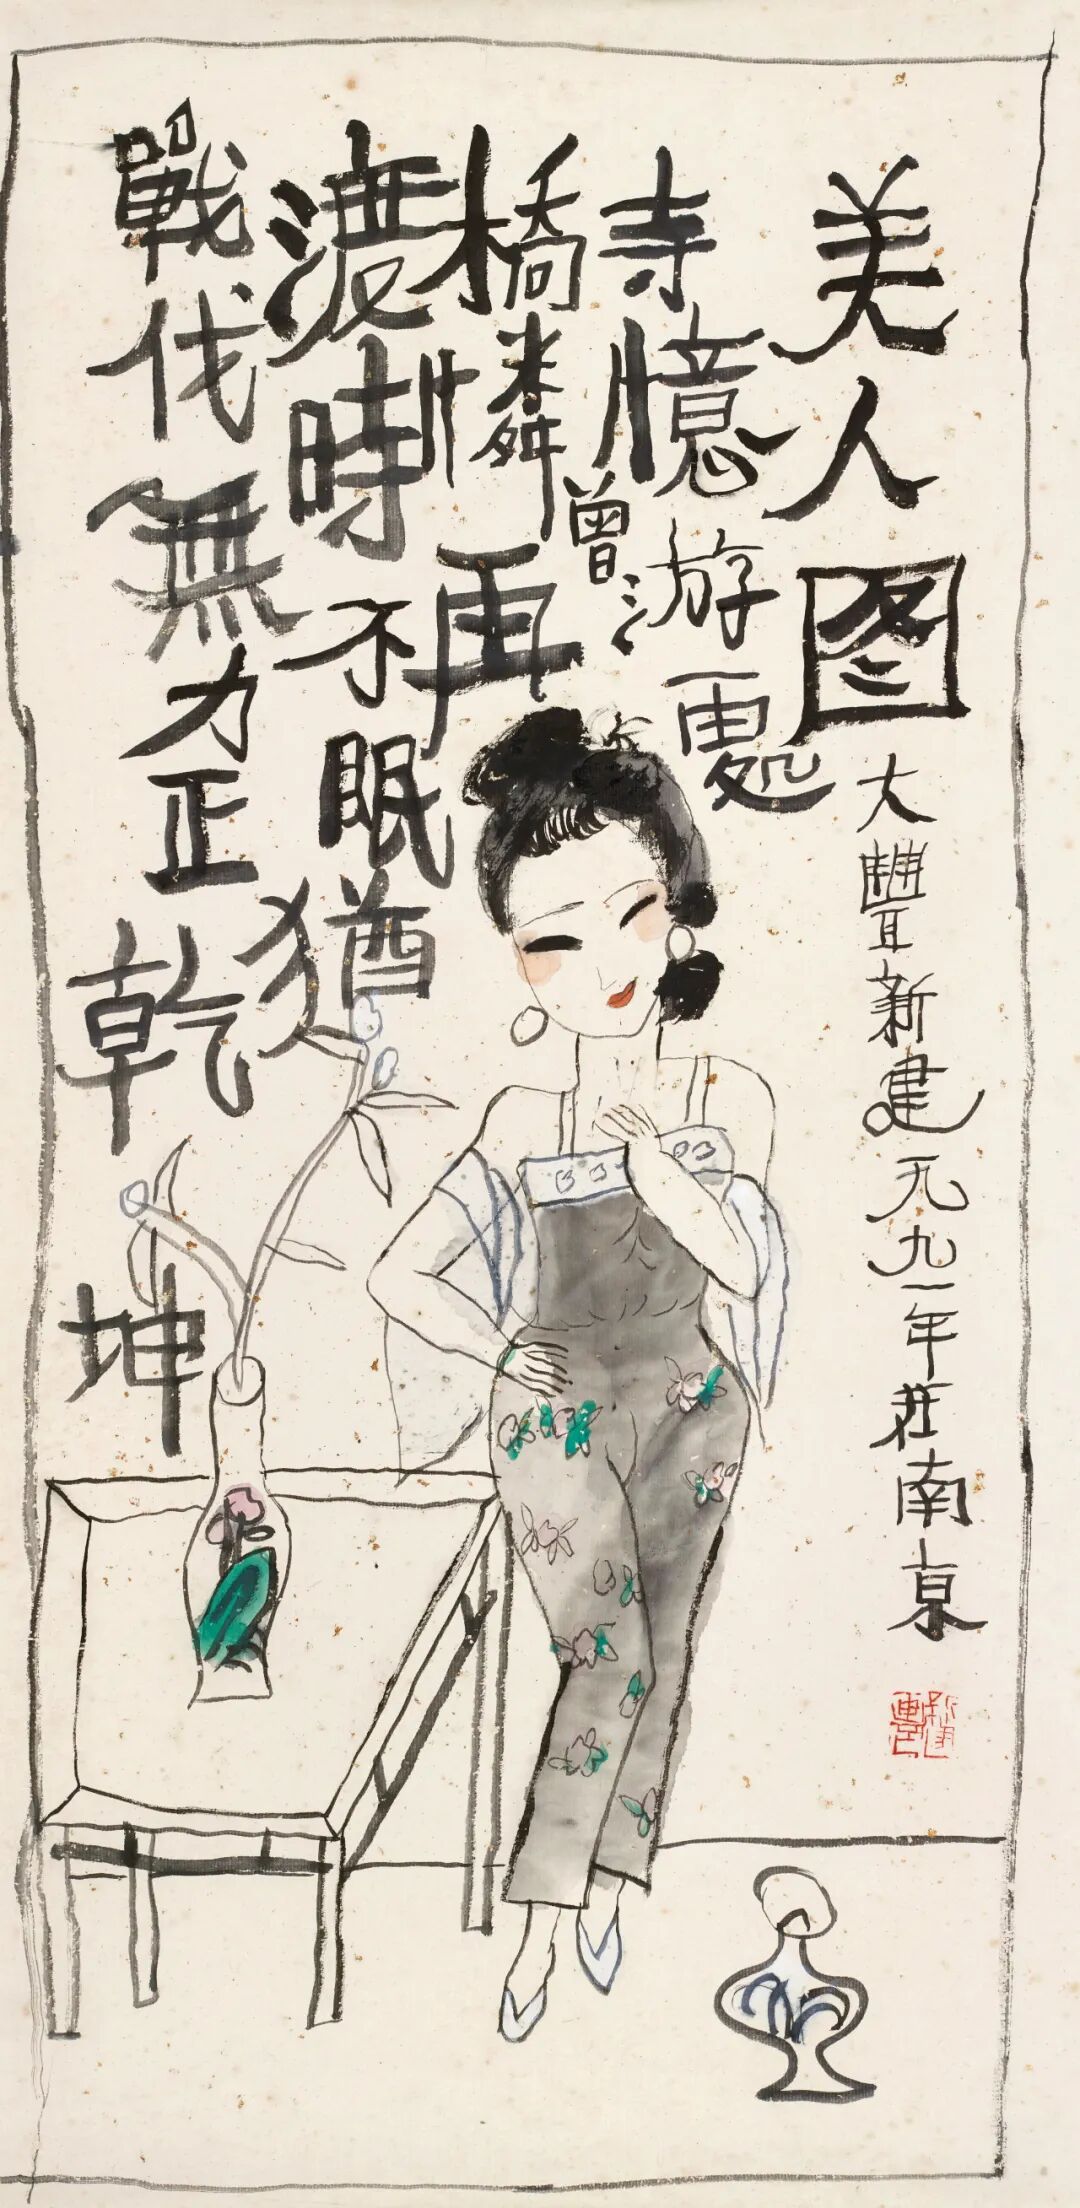 美人图
大豐新建一九九一年在南京
寺憶曾游處
橋憐再
渡時不眠猶
戰伐無力正乾坤